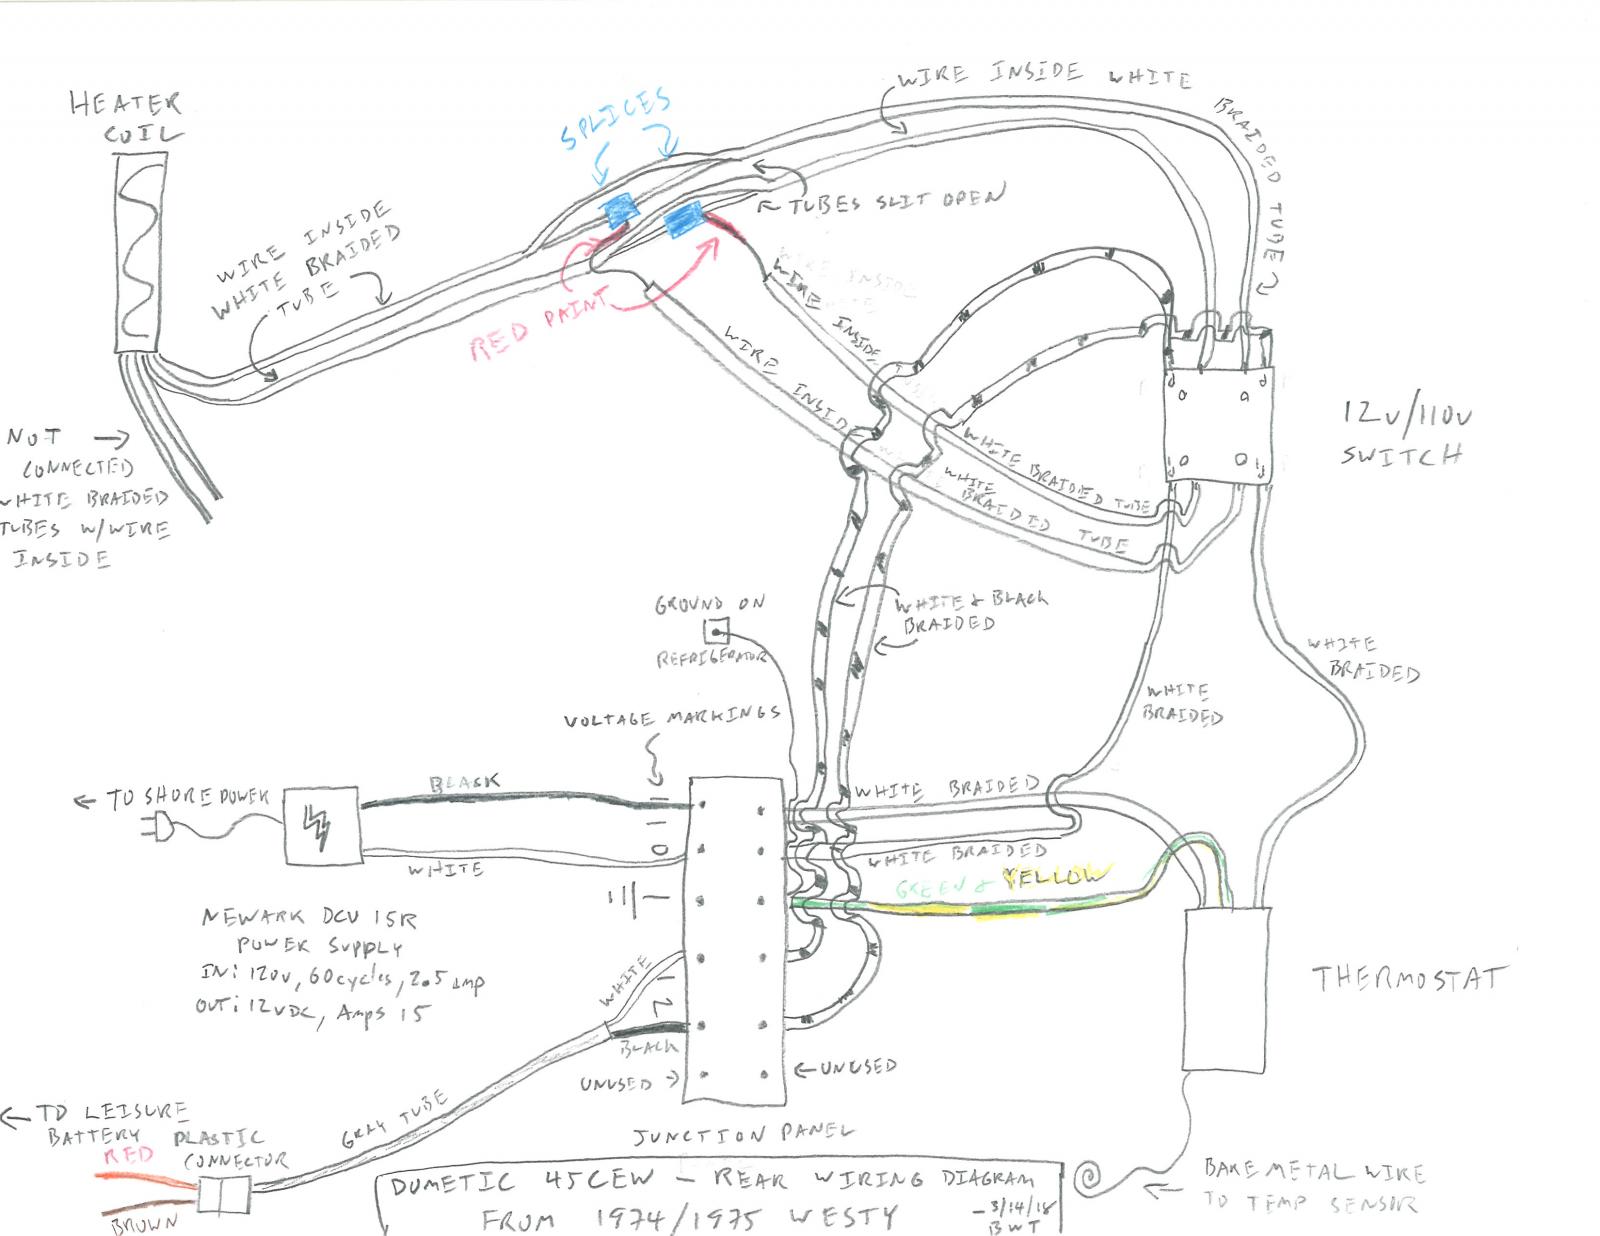 HEATER
COIL
WIRE INSIDE
WHITE BRAIDED
TUBE
NOT
CONNECTED
WHITE BRAIDED
TUBES W/WIRE
INSIDE
SPLICES
RED PAINT
TUBES SLIT OPEN
WIRE INSIDE WHITE
BRAIDED TUBE
WIRE INSIDE
WHITE BRAIDED TUBE
WIRE INSIDE
WHITE
BRAIDED TUBE
12V/110V
SWITCH
GROUND ON
REFRIGERATOR
WHITE & BLACK
BRAIDED
WHITE
BRAIDED
WHITE
BRAIDED
VOLTAGE MARKINGS
TO SHORE POWER
BLACK
WHITE
WHITE BRAIDED
WHITE BRAIDED
GREEN & YELLOW
NEWARK DCV 15R
POWER SUPPLY
IN: 120V, 60cycles, 2.5 amp
OUT: 12VDC, Amps 15
WHITE
BLACK
UNUSED
UNUSED
THERMOSTAT
GRAY TUBE
TO LEISURE
BATTERY
PLASTIC
CONNECTOR
RED
BROWN
JUNCTION PANEL
DOMETIC 45CEW - REAR WIRING DIAGRAM
FROM 1974/1975 WESTY
-3/14/18
BWT
BARE METAL WIRE
TO TEMP SENSOR